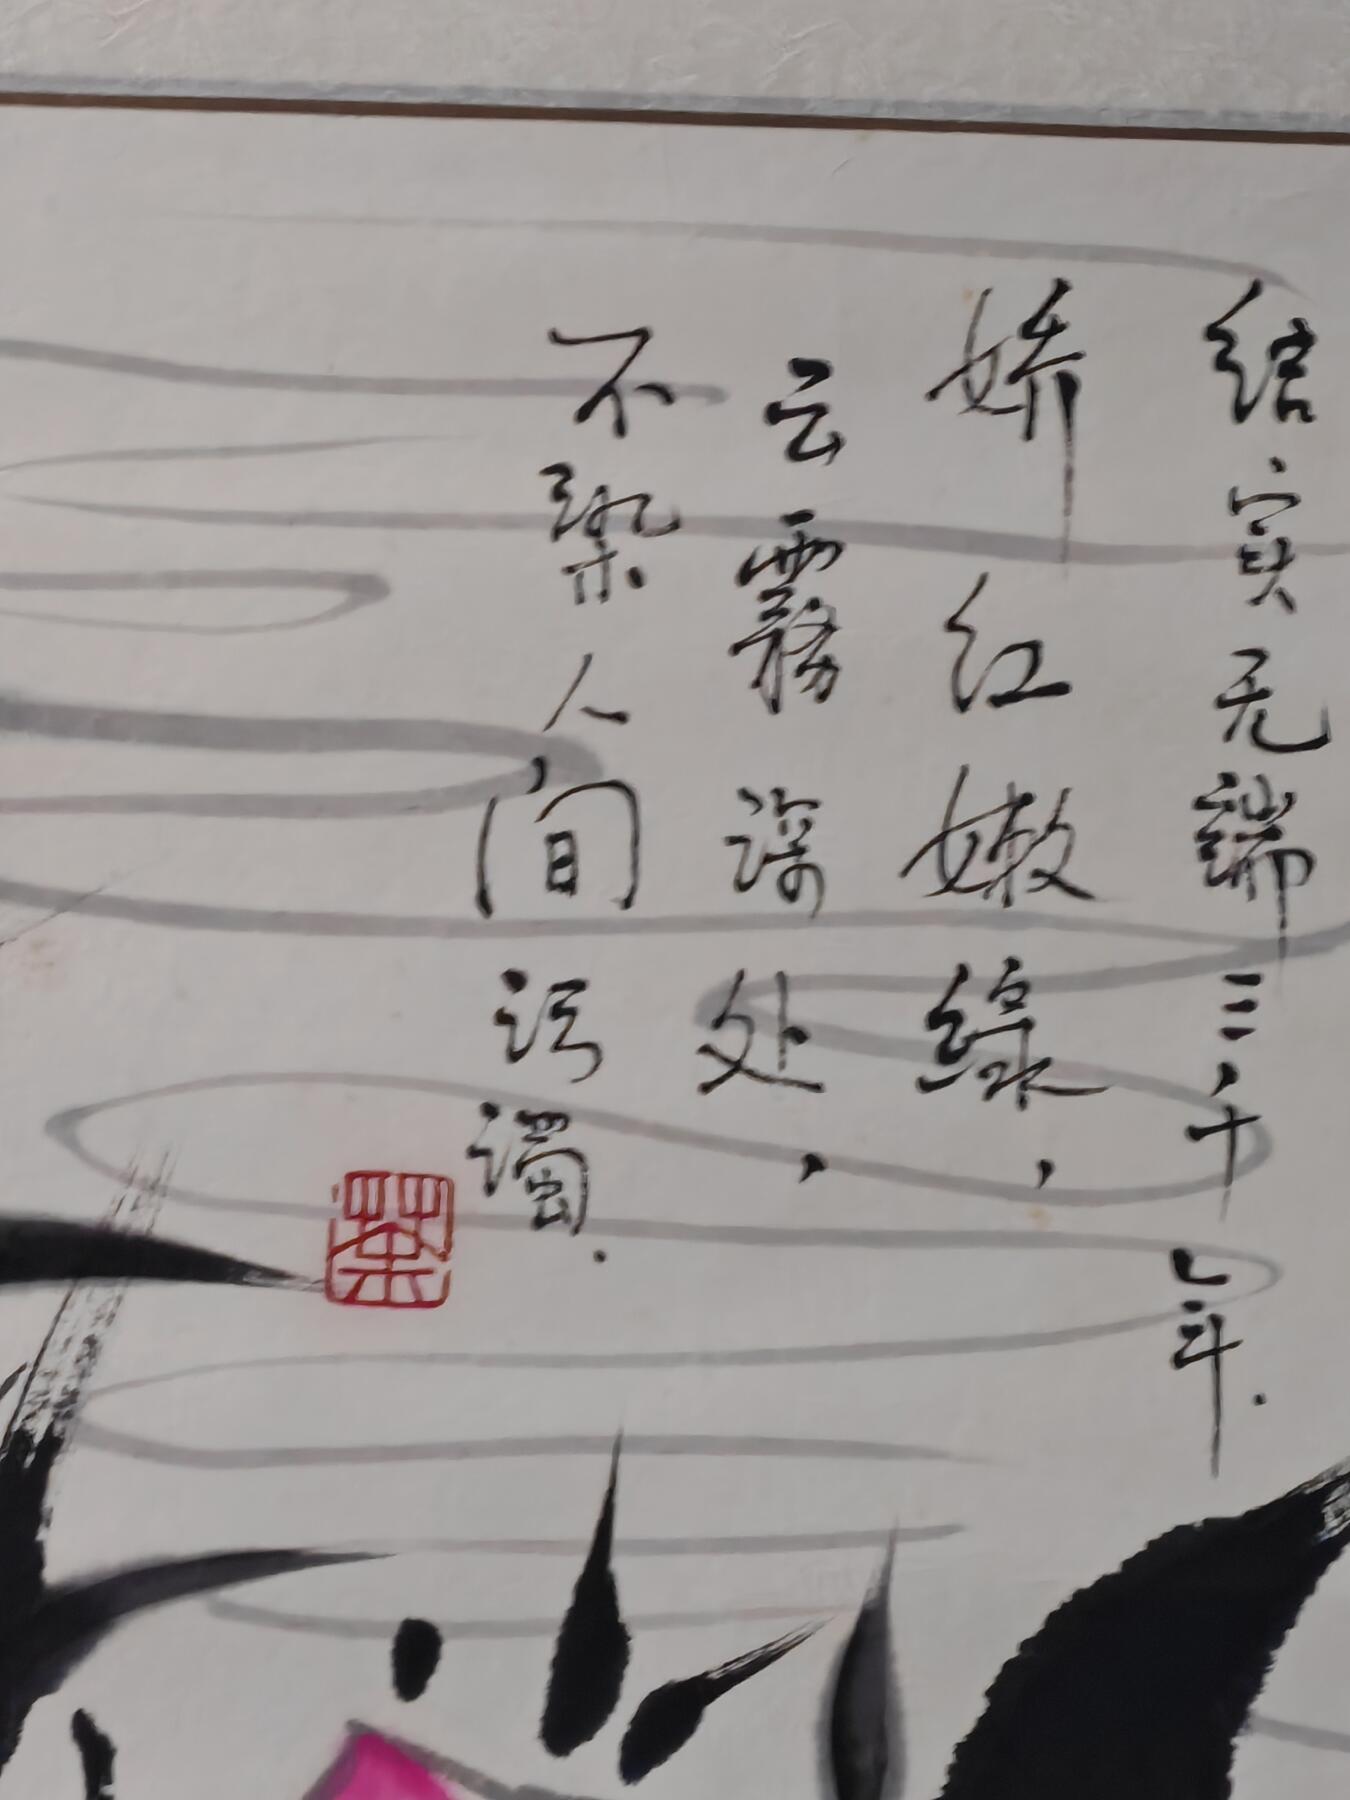 结实无端三千年.
娇红嫩綠,
云霧深处,
不染人间污濁.